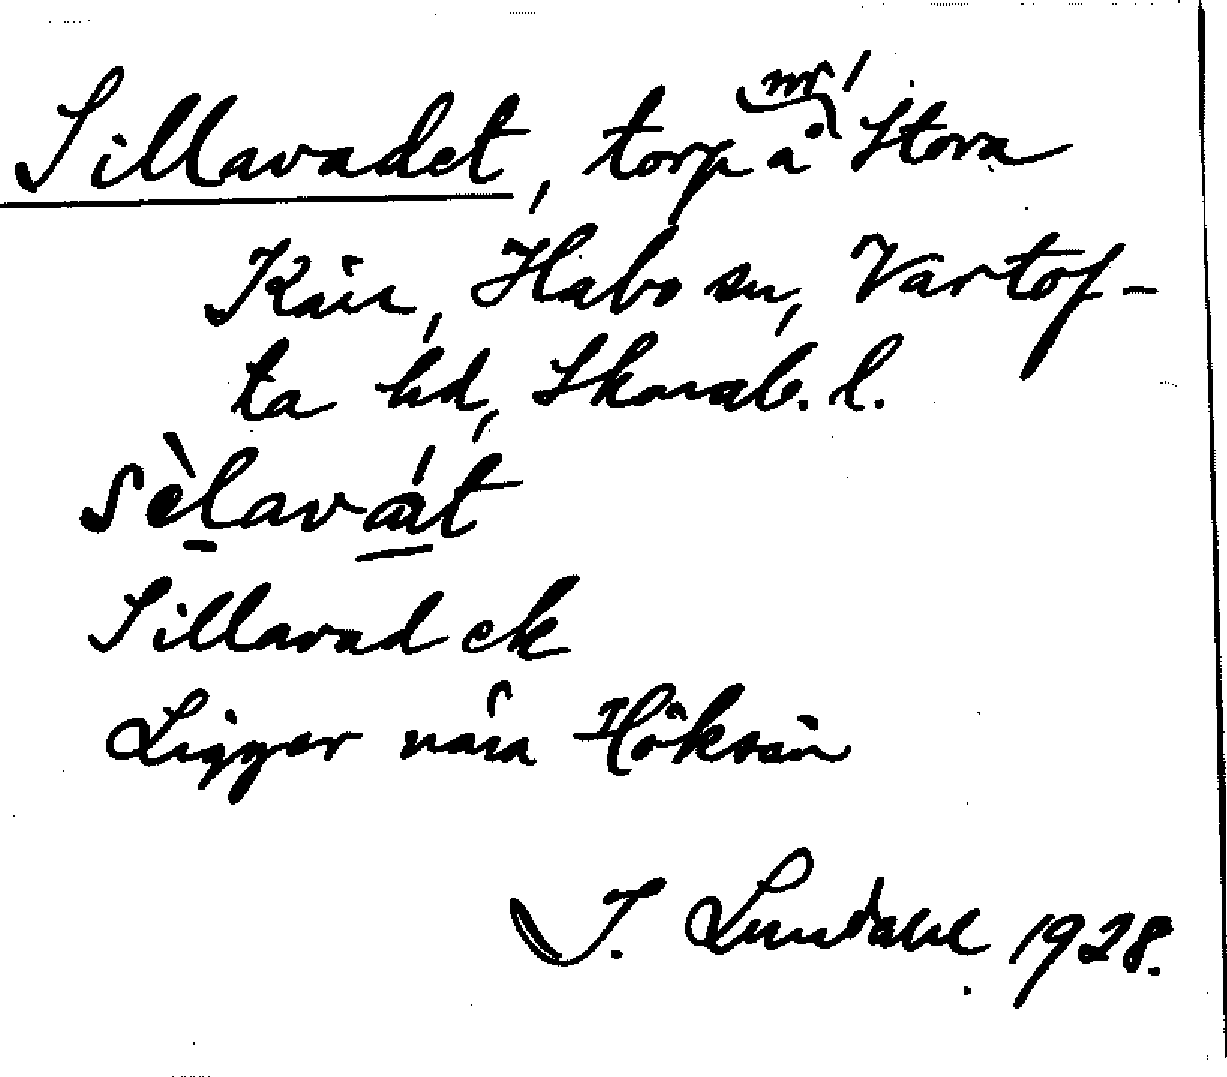 Sillavadet, torp å nr 1 Stora
Kärr, Habo sn, Vartof-
ta hd, Skarab. l.
sèlavát
Sillavad ek
Ligger nära Höksån
I. Lundahl 1928.